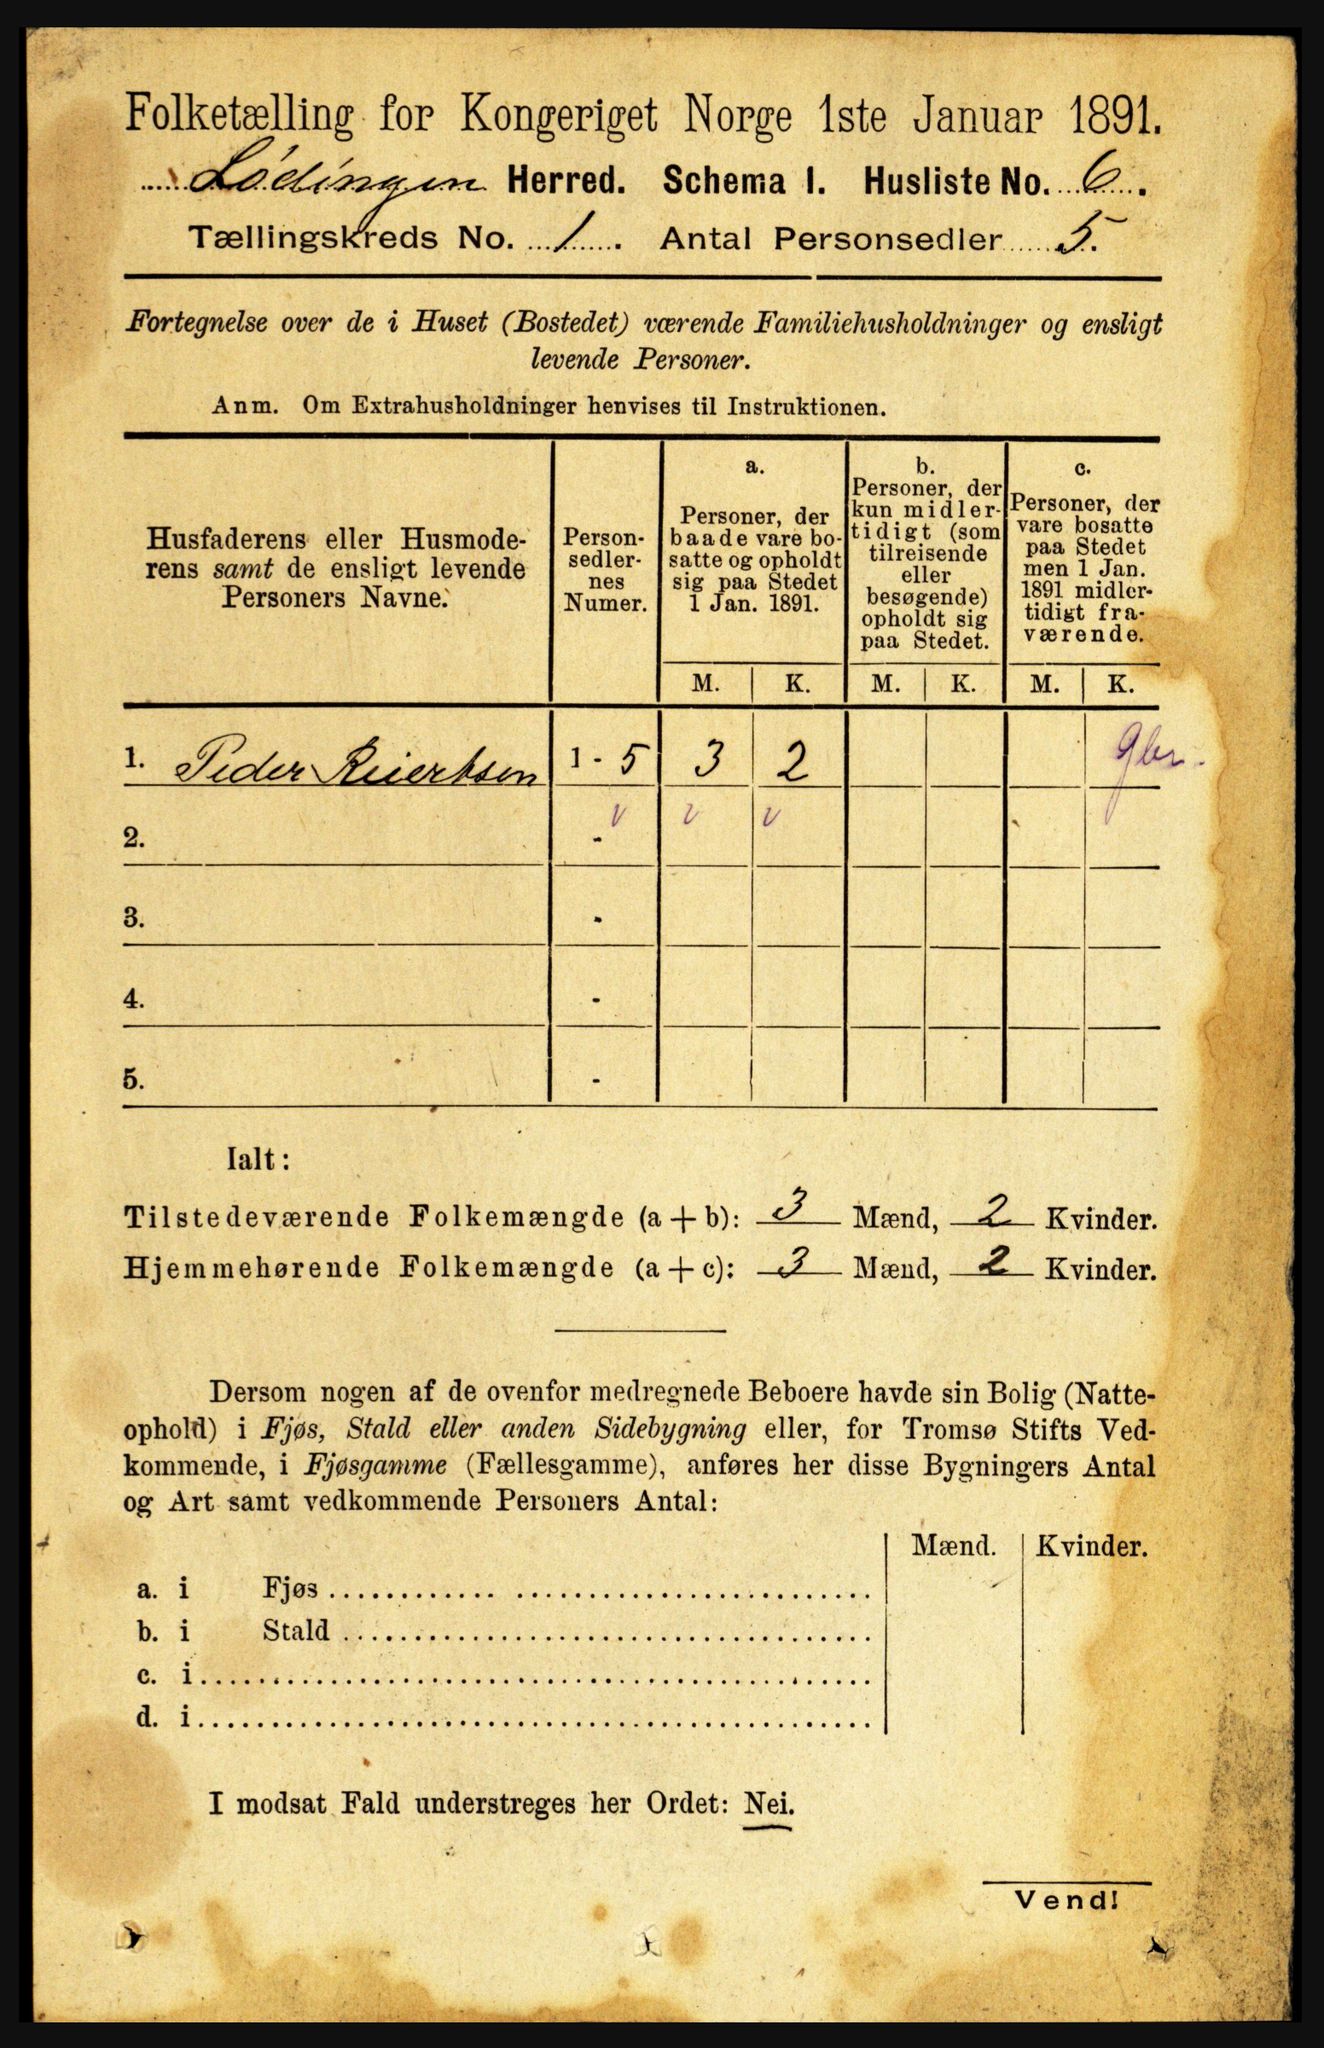 Folketælling for Kongeriget Norge 1ste Januar 1891.
Lödingen Herred. Schema I. Husliste No. 6.
Tællingskreds No. 1. Antal Personsedler 5.
Fortegnelse over de i Huset (Bostedet) værende Familiehusholdninger og ensligt
levende Personer.
Anm. Om Extrahusholdninger henvises til Instruktionen.
Husfaderens eller Husmode-
rens samt de ensligt levende
Personers Navne.
Person-
sedler-
nes
Numer.
a.
Personer, der
baade vare bo-
satte og opholdt
sig paa Stedet
1 Jan. 1891.
b.
Personer, der
kun midler-
tidigt (som
tilreisende
eller
besøgende)
opholdt sig
paa Stedet.
c.
Personer, der
vare bosatte
paa Stedet
men 1 Jan.
1891 midler-
tidigt fra-
værende.
M. K. M. K. M. K.
1. Peder Reiertsen 1 - 5 3 2 gbr.
v v v
2. -
3. -
4. -
5. -
Ialt:
Tilstedeværende Folkemængde (a + b): 3 Mænd, 2 Kvinder.
Hjemmehørende Folkemængde (a + c): 3 Mænd, 2 Kvinder.
Dersom nogen af de ovenfor medregnede Beboere havde sin Bolig (Natte-
ophold) i Fjøs, Stald eller anden Sidebygning eller, for Tromsø Stifts Ved-
kommende, i Fjøsgamme (Fællesgamme), anføres her disse Bygningers Antal
og Art samt vedkommende Personers Antal:
Mænd. Kvinder.
a. i Fjøs
b. i Stald
c. i
d. i
I modsat Fald understreges her Ordet: Nei.
Vend!